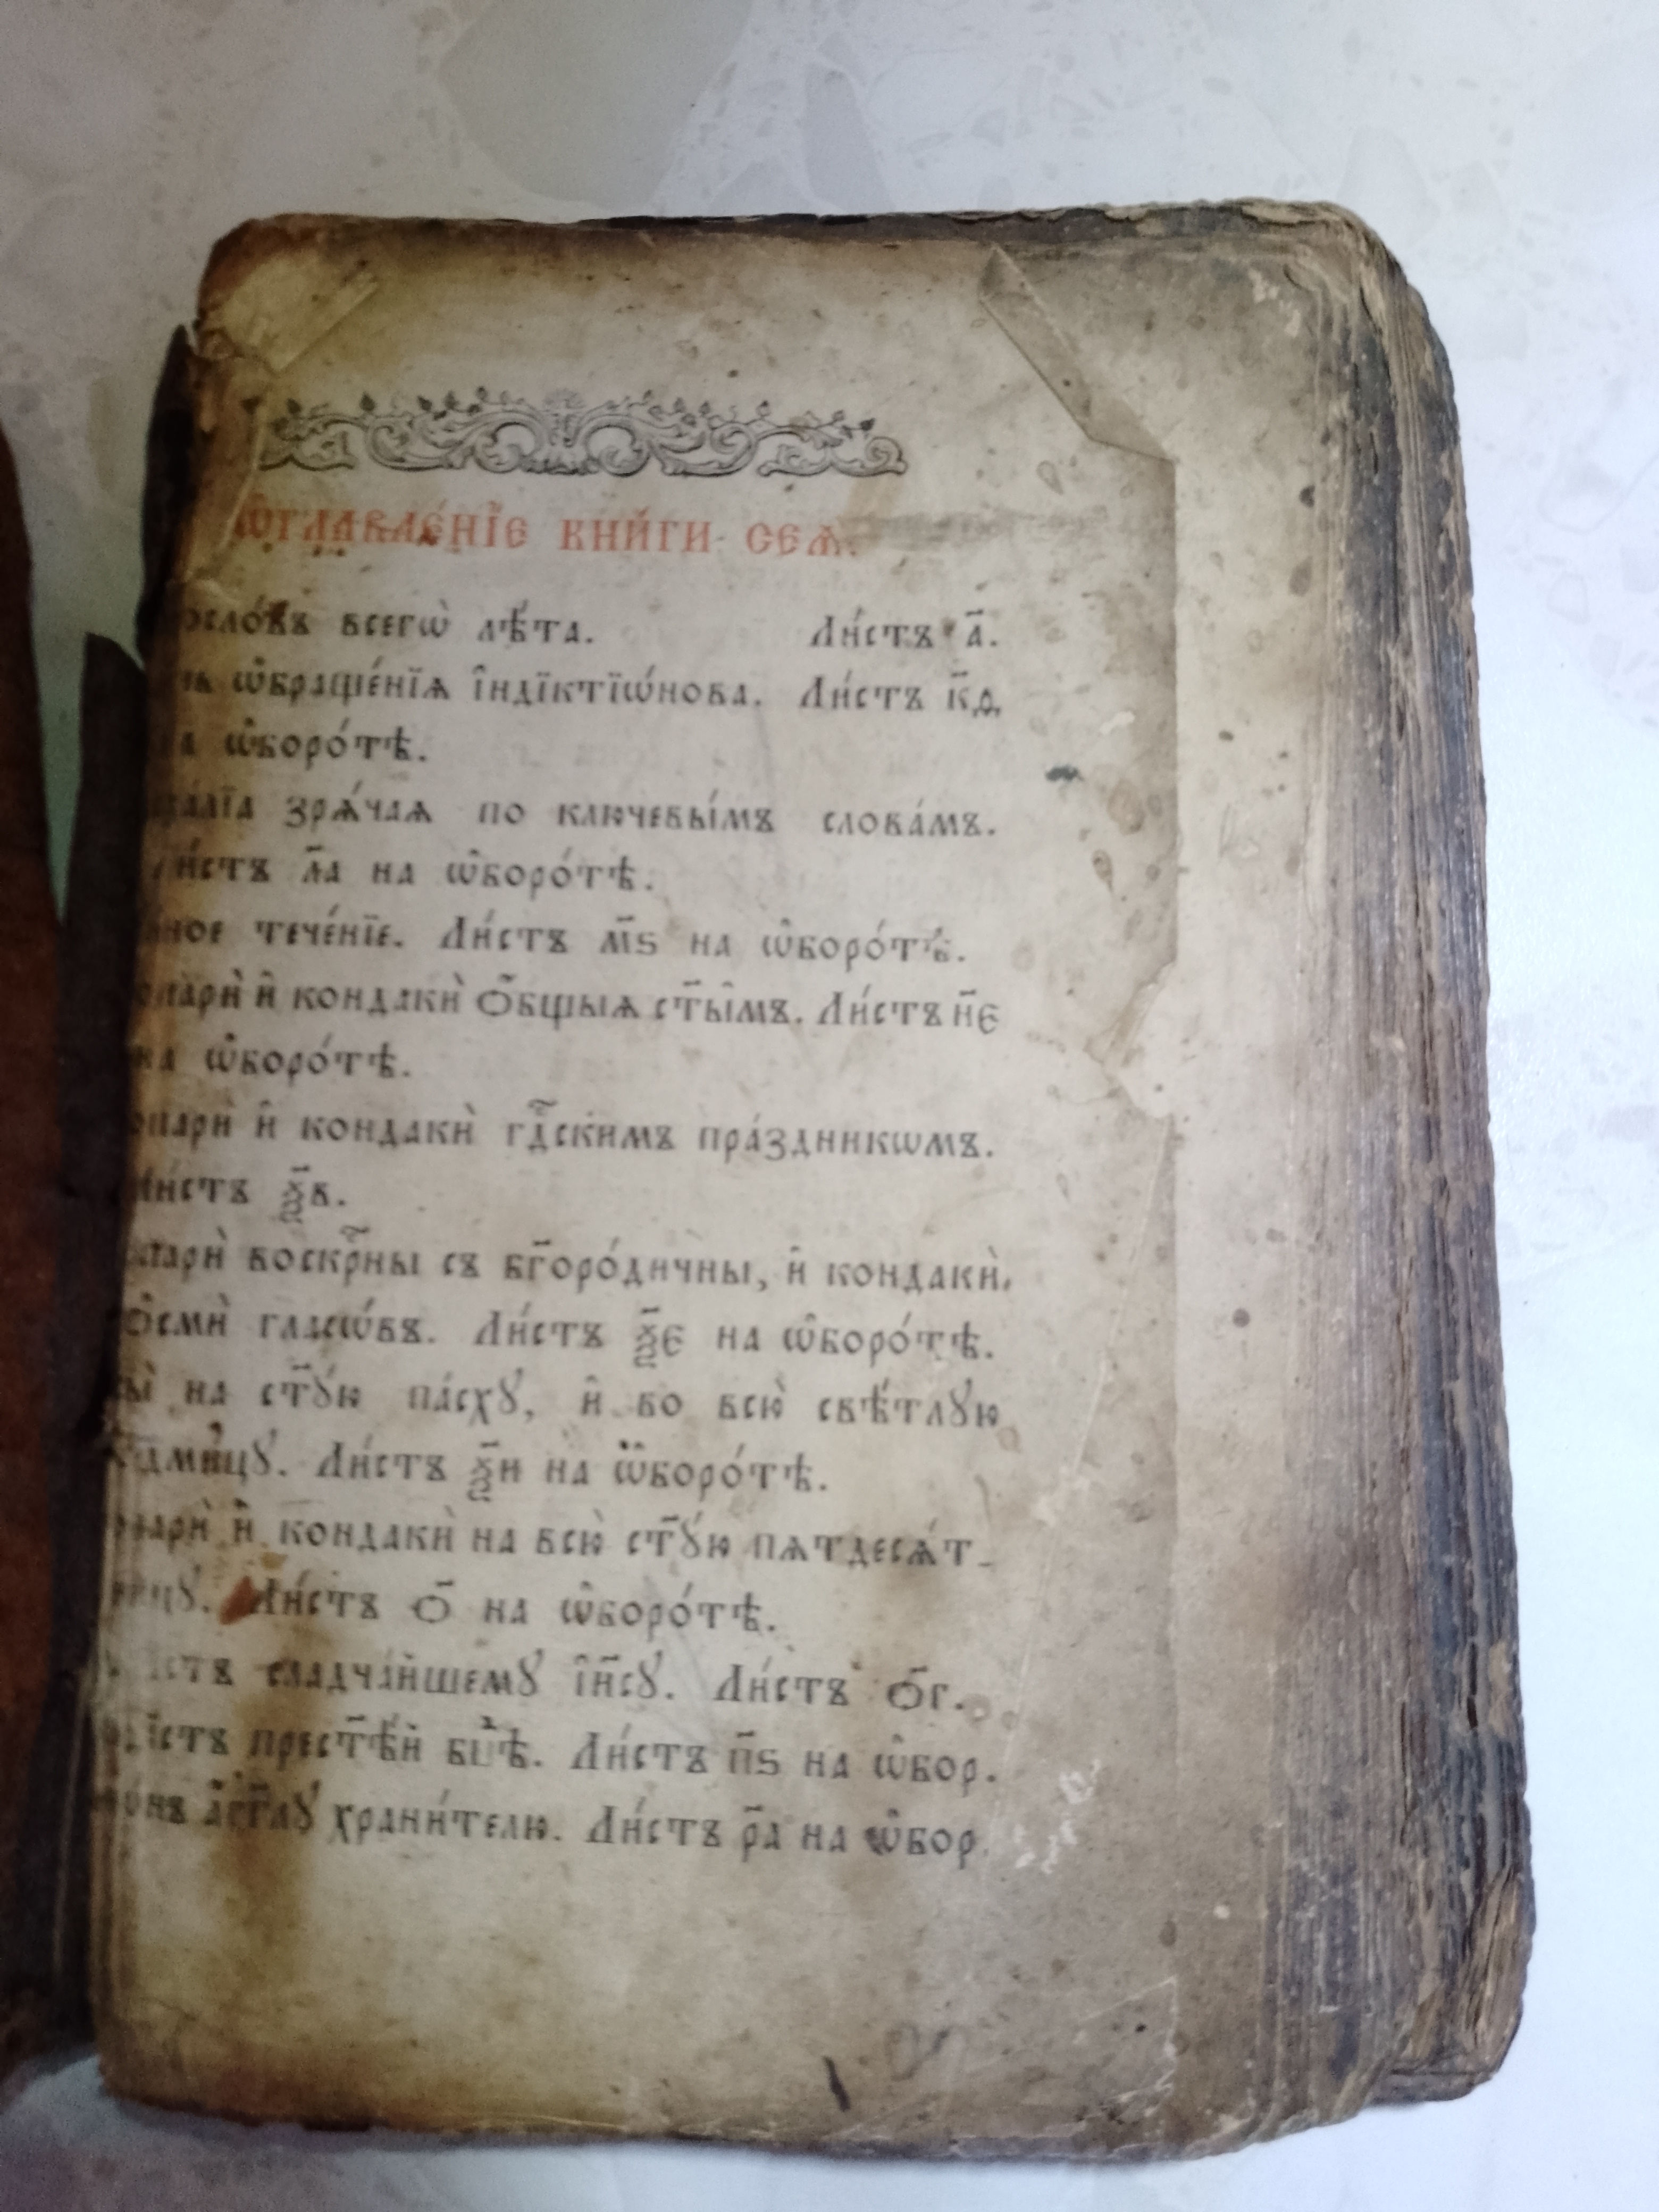 Ѡ҆главле́нїе кни́ги сеѧ̀.
всегѡ̀ лѣ́та. Ли́стъ а҃.
ѡ҆браще́нїѧ і҆ндїктїѡ́нова. Ли́стъ к҃д
на ѡ҆боро́тѣ.
зрѧ́чаѧ по ключевы́мъ слова́мъ.
Ли́стъ л҃а на ѡ҆боро́тѣ.
тече́нїе. Ли́стъ м҃ѕ на ѡ҆боро́тѣ.
и҆ кондакѝ ѻ҆́бщыѧ ст҃ы̑мъ. Ли́стъ н҃є
на ѡ҆боро́тѣ.
и҆ кондакѝ гдⷭ҇скимъ пра́здникѡмъ.
Ли́стъ ѯ҃в.
воскрⷭ҇ны съ бг҃оро́дичны, и҆ кондакѝ,
ѻ҆смѝ гласѡ́въ. Ли́стъ ѯ҃є на ѡ҆боро́тѣ.
на ст҃ꙋ́ю па́схꙋ, и҆ во всю̀ свѣ́тлꙋю
седми́цꙋ. Ли́стъ ѯ҃и на ѡ҆боро́тѣ.
и҆ кондакѝ на всю̀ ст҃ꙋ́ю пѧтдесѧ́т-
ницꙋ. Ли́стъ ѻ҃ на ѡ҆боро́тѣ.
сладча́йшемꙋ і҆и҃сꙋ. Ли́стъ ѻ҃г.
прест҃ѣ́й бц҃ѣ. Ли́стъ п҃ѕ на ѡ҆бор.
а҆́гг҃лꙋ храни́телю. Ли́стъ р҃а на ѡ҆бор.